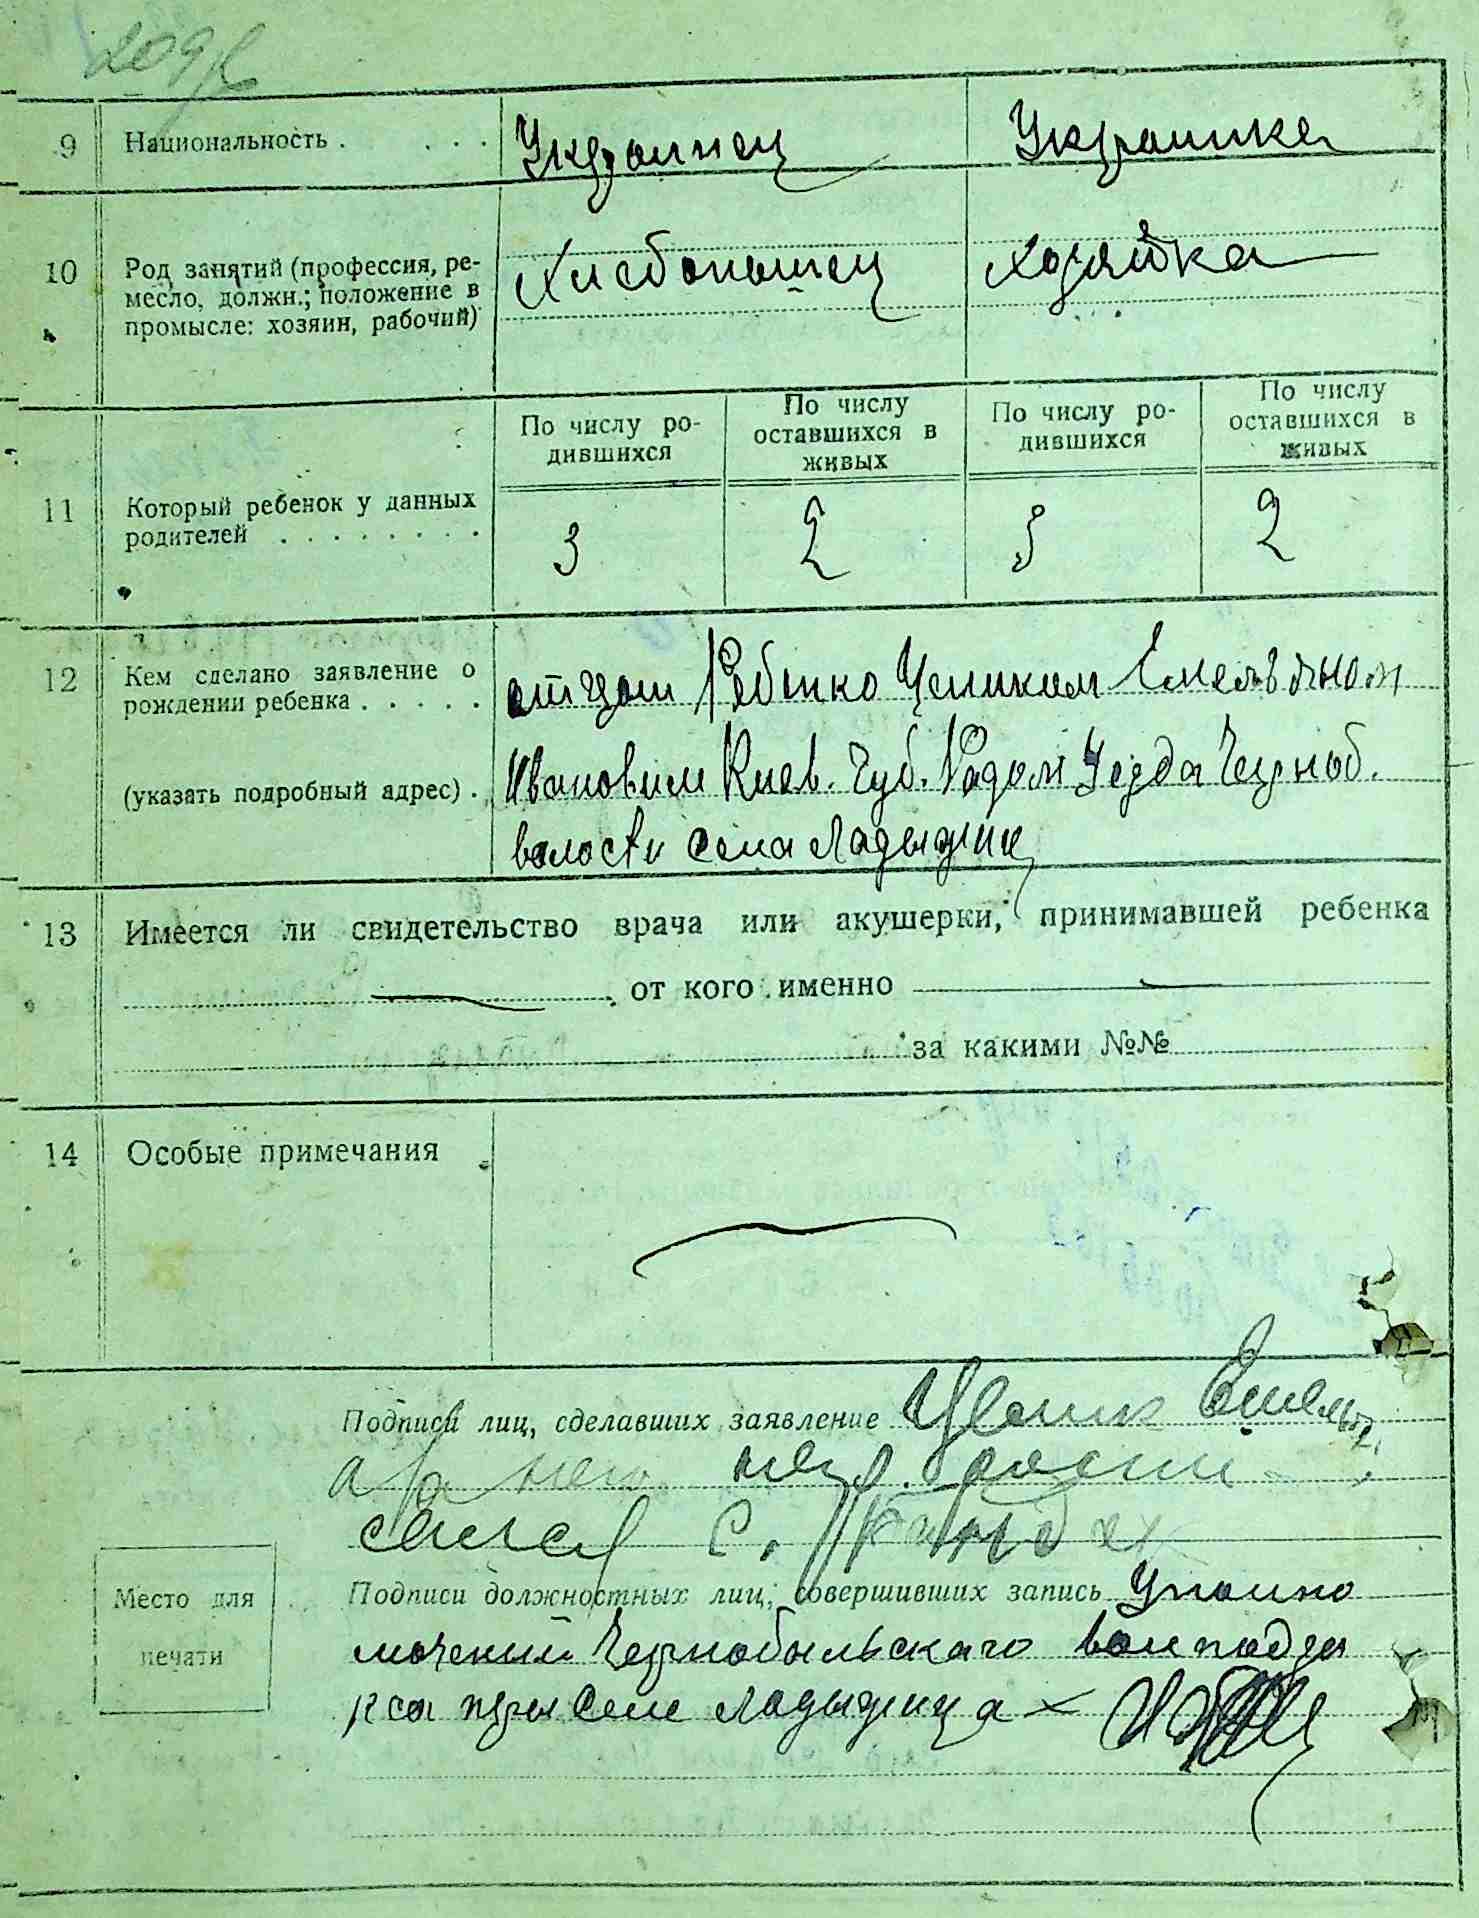 9 Национальность . . . . Украинец Украинка
10 Род занятий (профессия, ре-
месло, должн.; положение в
промысле: хозяин, рабочий)
Хлебопашец Хозяйка
По числу ро-
дившихся
По числу
оставшихся в
живых
По числу ро-
дившихся
По числу
оставшихся в
живых
11 Который ребенок у данных
родителей . . . . . . . .
3 2 3 2
12 Кем сделано заявление о
рождении ребенка . . . . .
(указать подробный адрес) .
отцом Ребенко Цыликом Емельяном
Ивановим Киев. Губ. Радом Уезда Черноб.
волости села Ладыжич
13 Имеется ли свидетельство врача или акушерки, принимавшей ребенка
от кого именно
за какими №№
14 Особые примечания
Подписи лиц, сделавших заявление Емельян
а за него негр. роспи-
сался С.
Место для
печати
Подписи должностных лиц, совершивших запись Уполно
моченый Чернобыльскаго волподза
кса при селе Ладыжичах